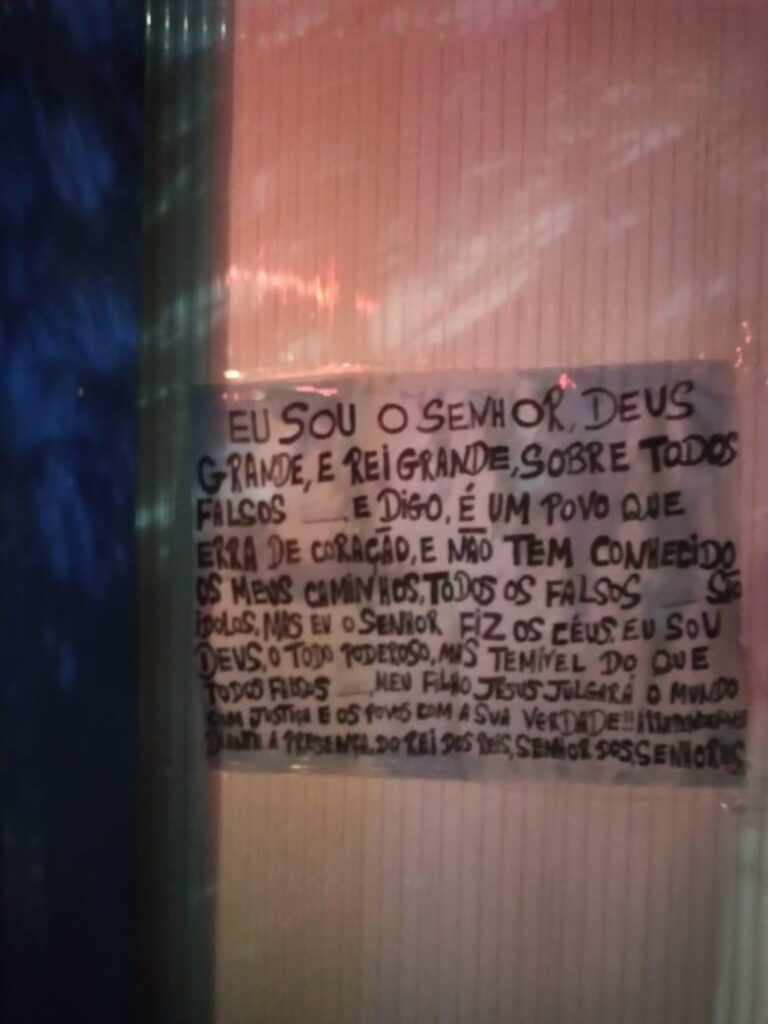 EU SOU O SENHOR, DEUS
GRANDE, E REI GRANDE, SOBRE TODOS
FALSOS ___ E DIGO, É UM POVO QUE
ERRA DE CORAÇÃO, E NÃO TEM CONHECIDO
OS MEUS CAMINHOS, TODOS OS FALSOS ___ SÃO
ÍDOLOS, MAS EU O SENHOR FIZ OS CÉUS. EU SOU
DEUS, O TODO PODEROSO, MAIS TEMÍVEL DO QUE
TODOS FALSOS ___, MEU FILHO JESUS JULGARÁ O MUNDO
COM JUSTIÇA E OS POVOS COM A SUA VERDADE!!
DIANTE A PRESENÇA DO REI DOS REIS, SENHOR DOS SENHORES